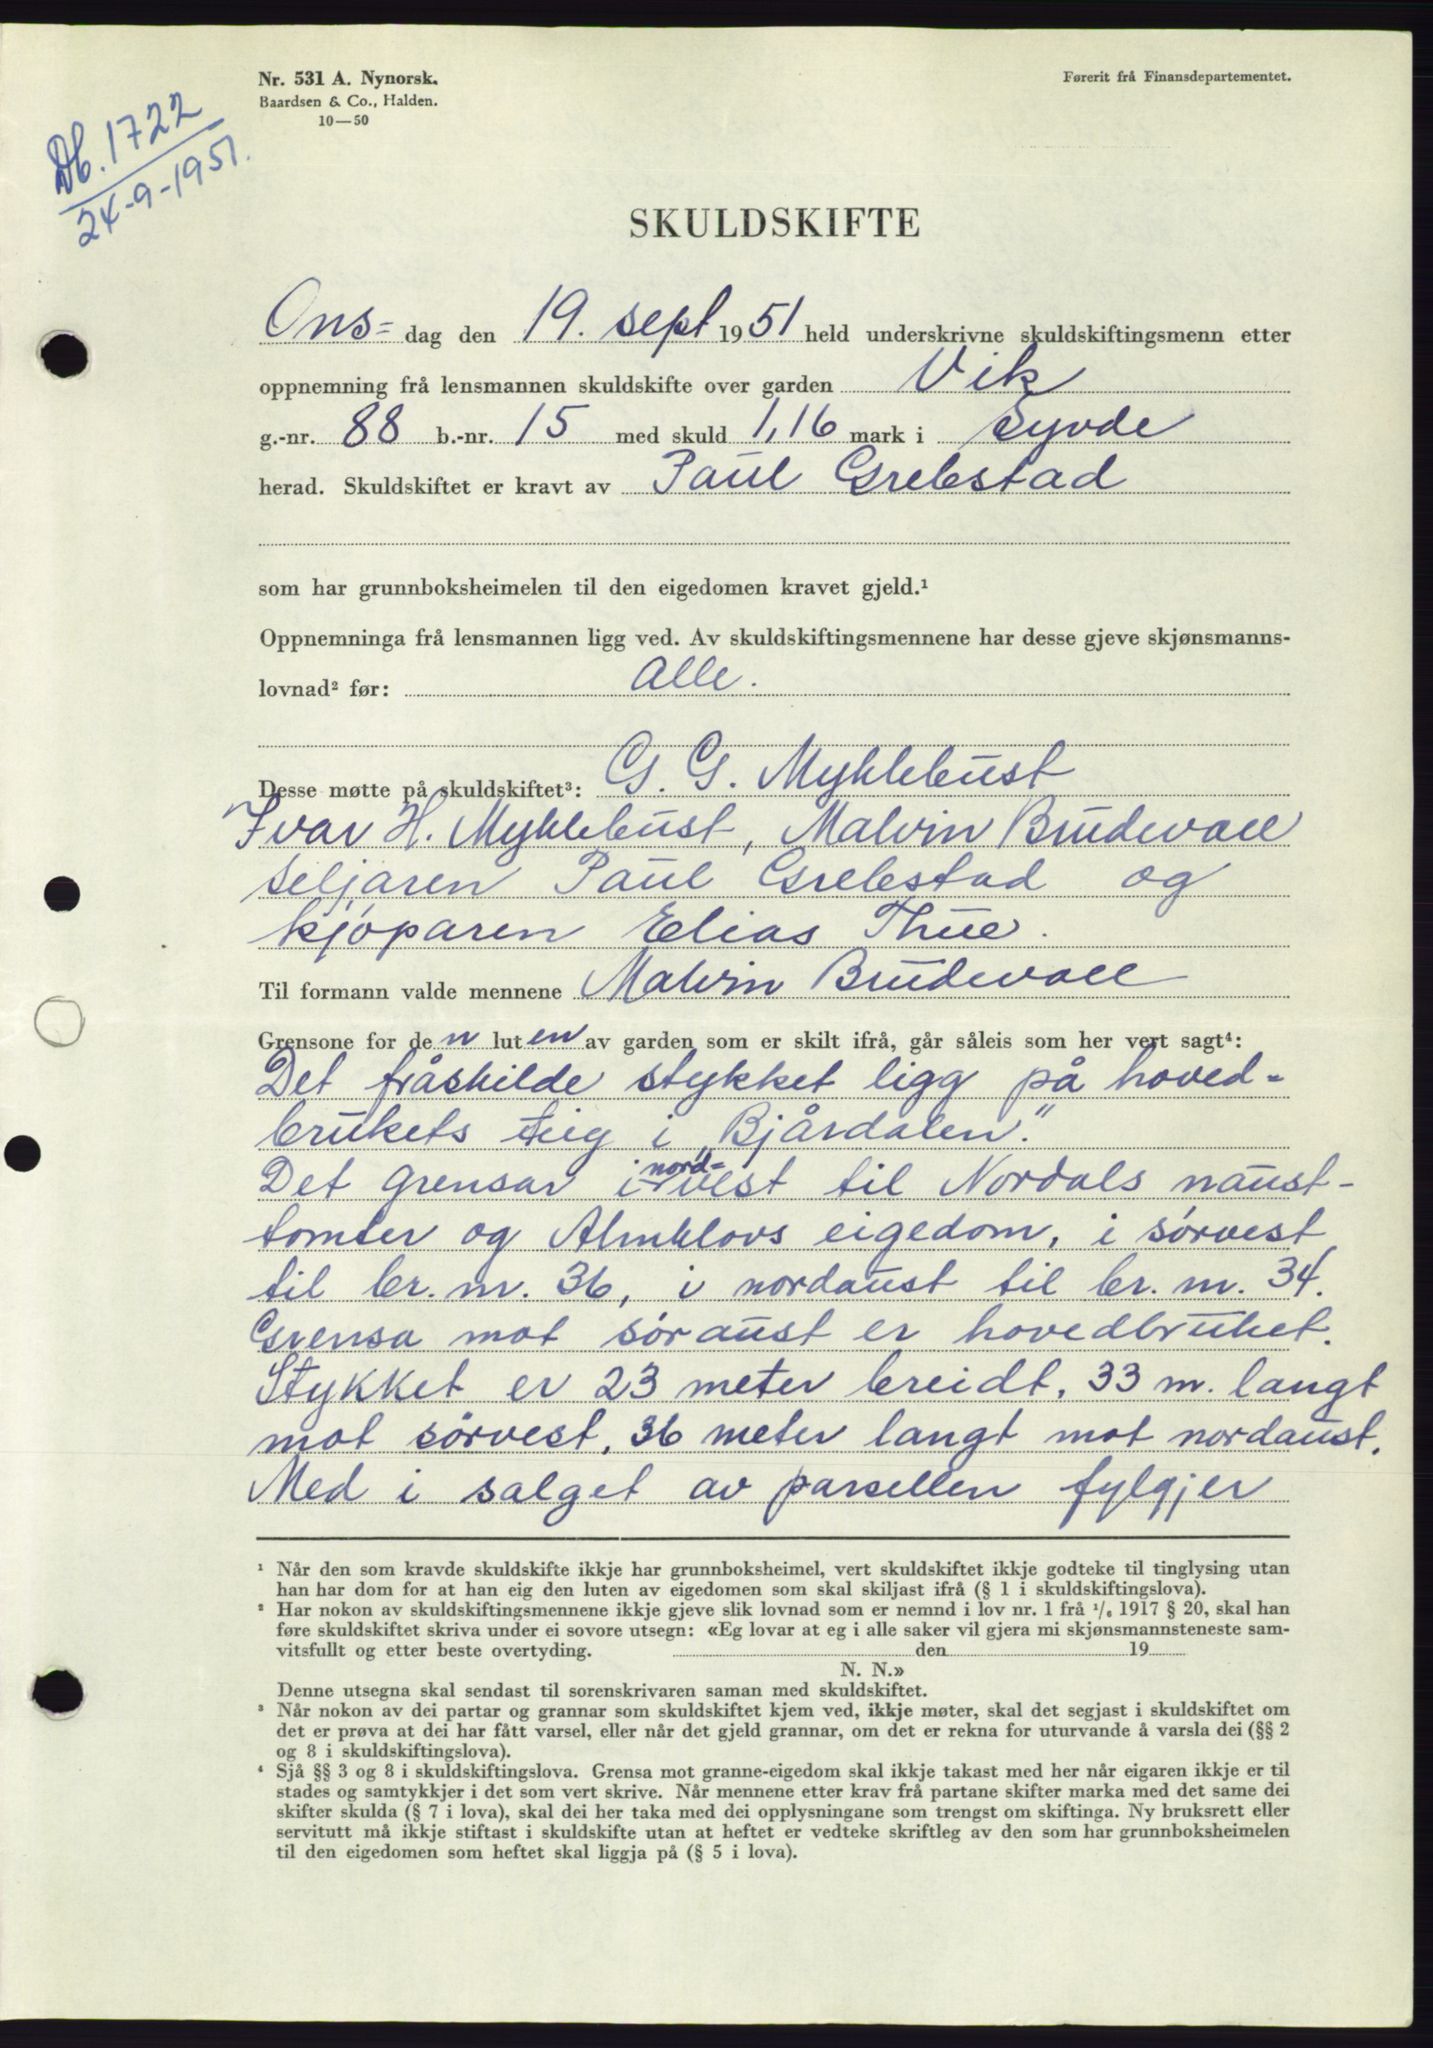 Nr. 531 A. Nynorsk.
Baardsen & Co., Halden.
10—50
Førerit frå Finansdepartementet.
Db. 1722
24-9-1951.
SKULDSKIFTE
Ons= dag den 19. sept 1951 held underskrivne skuldskiftingsmenn etter
oppnemning frå lensmannen skuldskifte over garden Vik
g.-nr. 88 b.-nr. 15 med skuld 1,16 mark i Syvde
herad. Skuldskiftet er kravt av Paul Grebstad
som har grunnboksheimelen til den eigedomen kravet gjeld.¹
Oppnemninga frå lensmannen ligg ved. Av skuldskiftingsmennene har desse gjeve skjønsmanns-
lovnad² før: Alle.
Desse møtte på skuldskiftet³: G. G. Myklebust
Ivar H. Myklebust, Malvin Brudevoll
seljaren Paul Grebstad og
kjøparen Elias Thue.
Til formann valde mennene Malvin Brudevoll
Grensone for den luten av garden som er skilt ifrå, går såleis som her vert sagt⁴:
Det fråskilde stykket ligg på hoved-
brukets teig i „Bjårdalen".
Det grensar i nord-vest til Nordals naust-
tomter og Almklovs eigedom, i sørvest
til br. nr. 36, i nordaust til br. nr. 34.
Grensa mot søraust er hovedbruket.
Stykket er 23 meter breidt, 33 m. langt
mot sørvest, 36 meter langt mot nordaust.
Med i salget av parsellen fylgjer
¹ Når den som kravde skuldskifte ikkje har grunnboksheimel, vert skuldskiftet ikkje godteke til tinglysing utan
han har dom for at han eig den luten av eigedomen som skal skiljast ifrå (§ 1 i skuldskiftingslova).
² Har nokon av skuldskiftingsmennene ikkje gjeve slik lovnad som er nemnd i lov nr. 1 frå ¹/₆ 1917 § 20, skal han
føre skuldskiftet skriva under ei sovore utsegn: «Eg lovar at eg i alle saker vil gjera mi skjønsmannsteneste sam-
vitsfullt og etter beste overtyding. den 19
N. N.»
Denne utsegna skal sendast til sorenskrivaren saman med skuldskiftet.
³ Når nokon av dei partar og grannar som skuldskiftet kjem ved, ikkje møter, skal det segjast i skuldskiftet om
det er prøva at dei har fått varsel, eller når det gjeld grannar, om det er rekna for uturvande å varsla dei (§§ 2
og 8 i skuldskiftingslova).
⁴ Sjå §§ 3 og 8 i skuldskiftingslova. Grensa mot granne-eigedom skal ikkje takast med her når eigaren ikkje er til
stades og samtykkjer i det som vert skrive. Når mennene etter krav frå partane skifter marka med det same dei
skifter skulda (§ 7 i lova), skal dei her taka med dei opplysningane som trengst om skiftinga. Ny bruksrett eller
servitutt må ikkje stiftast i skuldskifte utan at heftet er vedteke skriftleg av den som har grunnboksheimelen
til den eigedomen som heftet skal liggja på (§ 5 i lova).